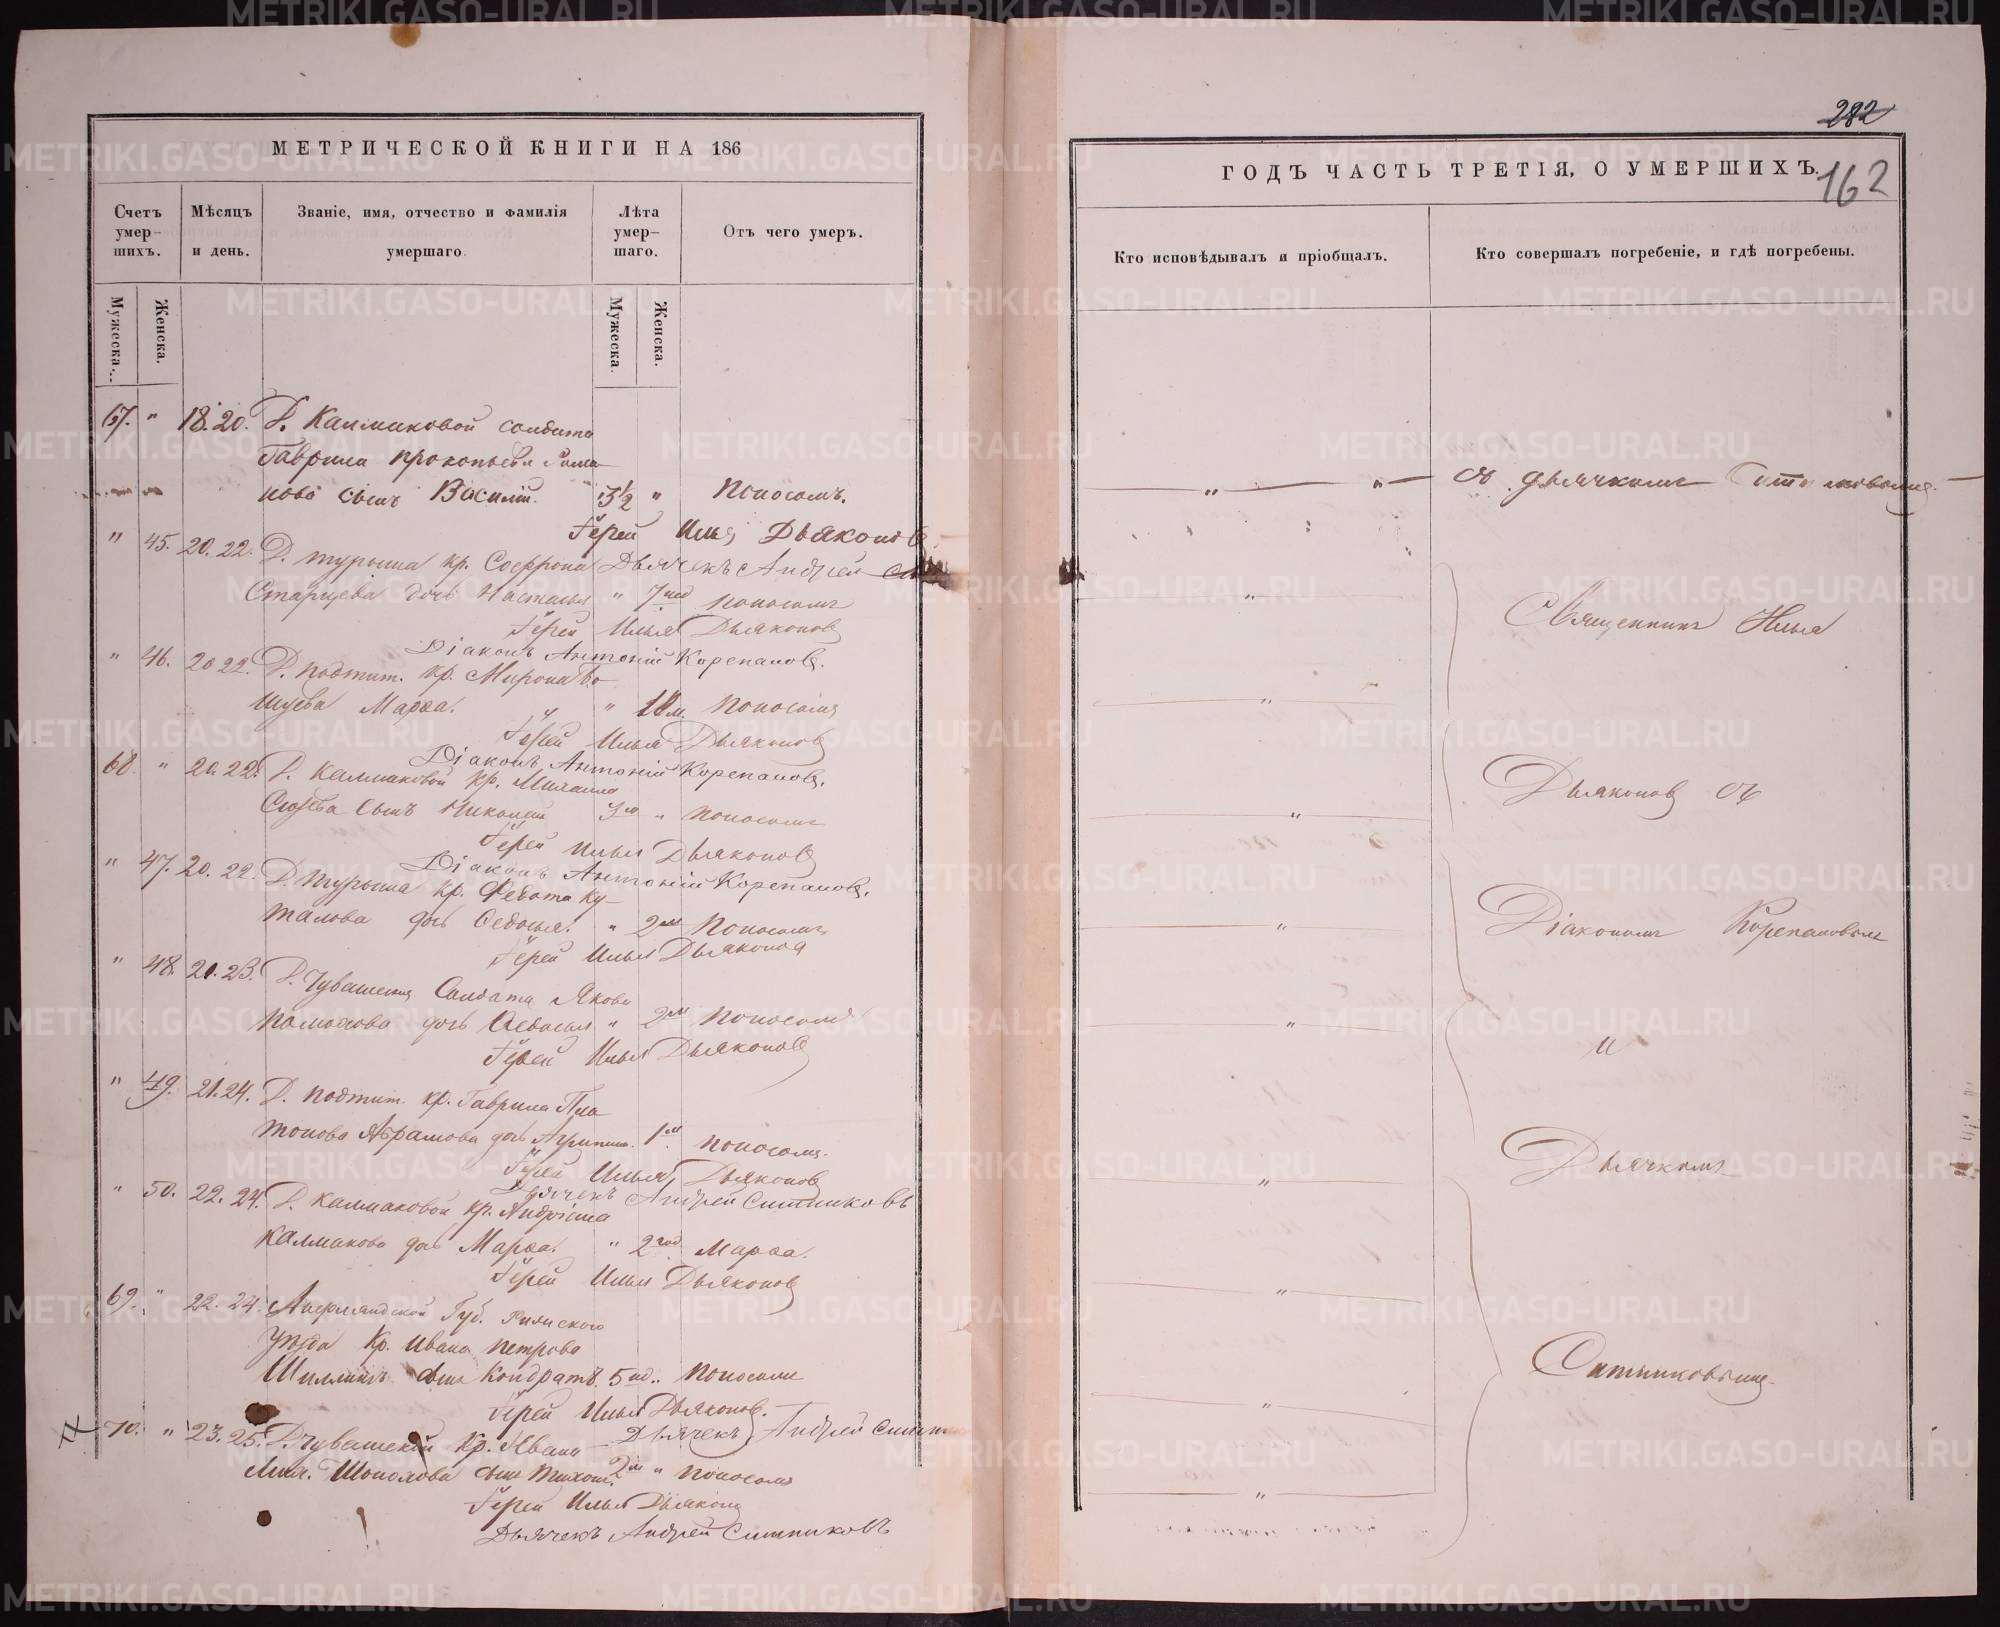 282
162
МЕТРИЧЕСКОЙ КНИГИ НА 186
ГОДЪ ЧАСТЬ ТРЕТІЯ, О УМЕРШИХЪ.
Счетъ умер-шихъ.
Мѣсяцъ и день.
Званіе, имя, отчество и фамилія умершаго.
Лѣта умер-шаго.
Отъ чего умеръ.
Кто исповѣдывалъ и пріобщалъ.
Кто совершалъ погребеніе, и гдѣ погребены.
Мужеска.
Женска.
Мужеска.
Женска.
67. " 18. 20. Д. Калмаковой солдата
Гаврила Прокопьева
сынъ Василій. 3½ " Поносомъ.
съ дьячкомъ Ситниковымъ
Іерей Илья Дьяконовъ
" 45. 20. 22. Д. Турыша кр. Софрона
Дьячекъ Андрей
Старцева дочь Настасья " 7 нед поносомъ
Іерей Илья Дьяконовъ
Діаконъ Антоній Корепановъ.
" 46. 20 22. Д. Подтит. кр. Мирона
Марѳа. " 10 м. поносомъ
Іерей Илья Дьяконовъ
Діаконъ Антоній Корепановъ.
68. " 20. 22. Д. Калмаковой кр. Михаила
сынъ Николай 3м " поносомъ
Іерей Илья Дьяконовъ
Діаконъ Антоній Корепановъ.
" 47. 20. 22. Д. Турыша кр. Федота Ку-
талова дочь Ѳедосья. " 2м Поносомъ
Іерей Илья Дьяконовъ
" 48. 20. 23. Солдата Якова
дочь Ѳедосья " 2м поносомъ
Іерей Илья Дьяконовъ
" 49. 21. 24. Д. Подтит. кр. Гаврила Пла
тонова Абрамова дочь 1м. поносомъ.
Іерей Илья Дьяконовъ
Дьячекъ Андрей Ситниковъ
" 50. 22. 24. Д. Калмаковой кр. Андріана
Калмакова дочь Марѳа. " 2 год. Марѳа.
Іерей Илья Дьяконовъ
69. " 22. 24. Губ.
уѣзда Кр. Ивана Петрова
сынъ Кондратъ. 5 нд. " поносомъ
Іерей Илья Дьяконовъ.
Дьячекъ Андрей
70. " 23. 25. Д. Кр. Ивана
сынъ 2м " поносомъ
Іерей Илья Дьяконовъ
Дьячекъ Андрей Ситниковъ
Священникъ Илья
Дьяконовъ съ
Діакономъ Корепановымъ
и
Дьячкомъ
Ситниковымъ.
METRIKI.GASO-URAL.RU